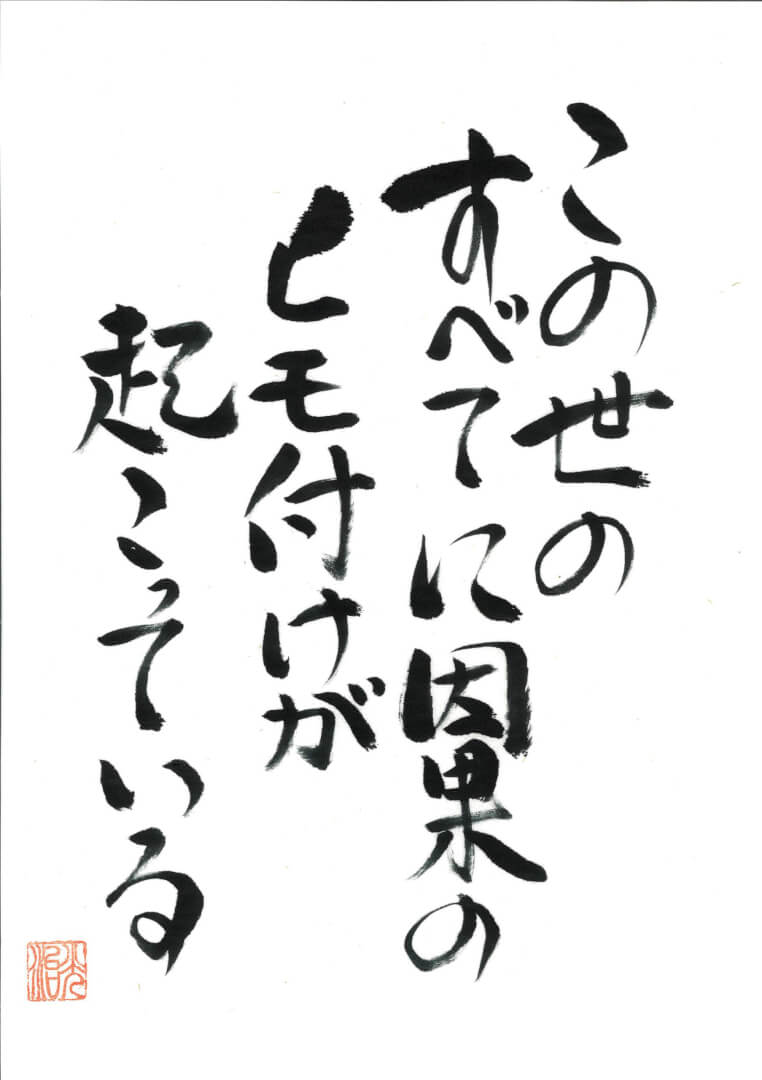 この世の
すべてに因果の
ヒモ付けが
起こっている